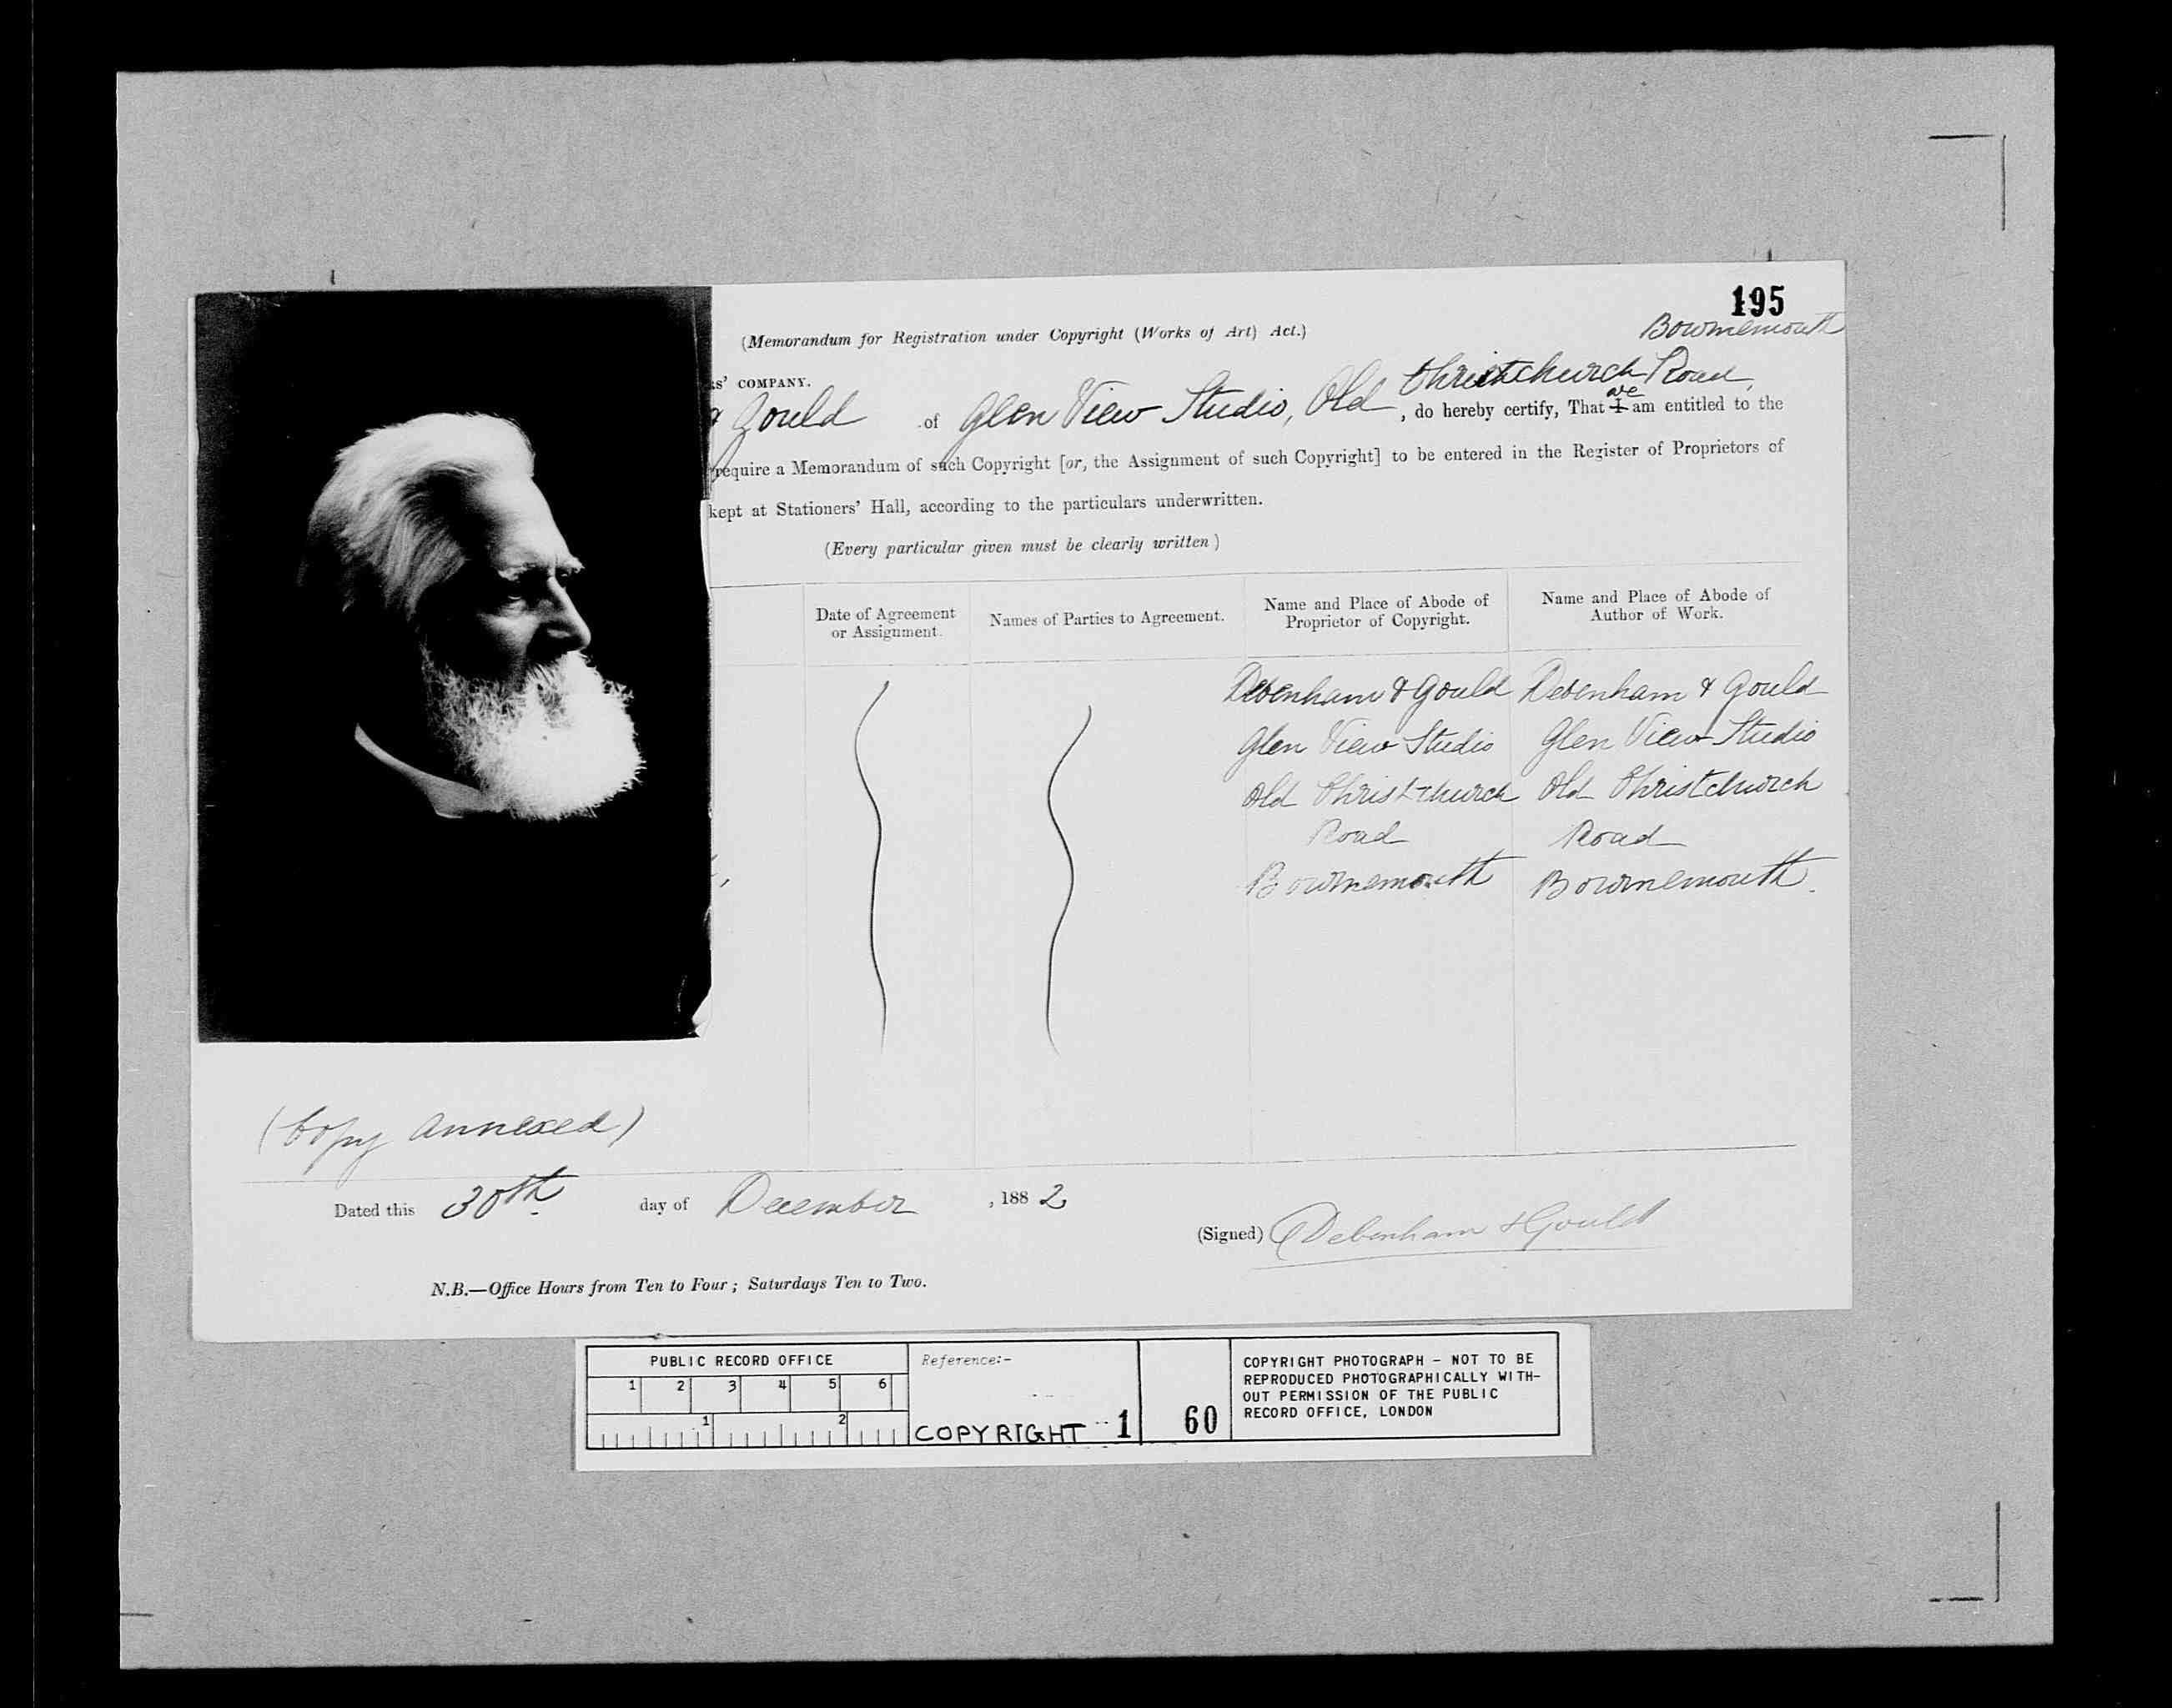 195
Bournemouth
(Memorandum for Registration under Copyright (Works of Art) Act.)
rs' COMPANY.
& Gould of Glen View Studio, Old Christchurch Road, do hereby certify, That I we am entitled to the
require a Memorandum of such Copyright [or, the Assignment of such Copyright] to be entered in the Register of Proprietors of
kept at Stationers' Hall, according to the particulars underwritten.
(Every particular given must be clearly written)
Date of Agreement
or Assignment.
Names of Parties to Agreement.
Name and Place of Abode of
Proprietor of Copyright.
Name and Place of Abode of
Author of Work.
Debenham & Gould
Glen View Studio
Old Christchurch
Road
Bournemouth
Debenham & Gould
Glen View Studio
Old Christchurch
Road
Bournemouth.
(Copy annexed)
Dated this 30th day of December, 1882
(Signed) Debenham & Gould
N.B.—Office Hours from Ten to Four; Saturdays Ten to Two.
PUBLIC RECORD OFFICE
1 2 3 4 5 6
1 2
Reference:-
COPYRIGHT 1 60
COPYRIGHT PHOTOGRAPH - NOT TO BE
REPRODUCED PHOTOGRAPHICALLY WITH-
OUT PERMISSION OF THE PUBLIC
RECORD OFFICE, LONDON